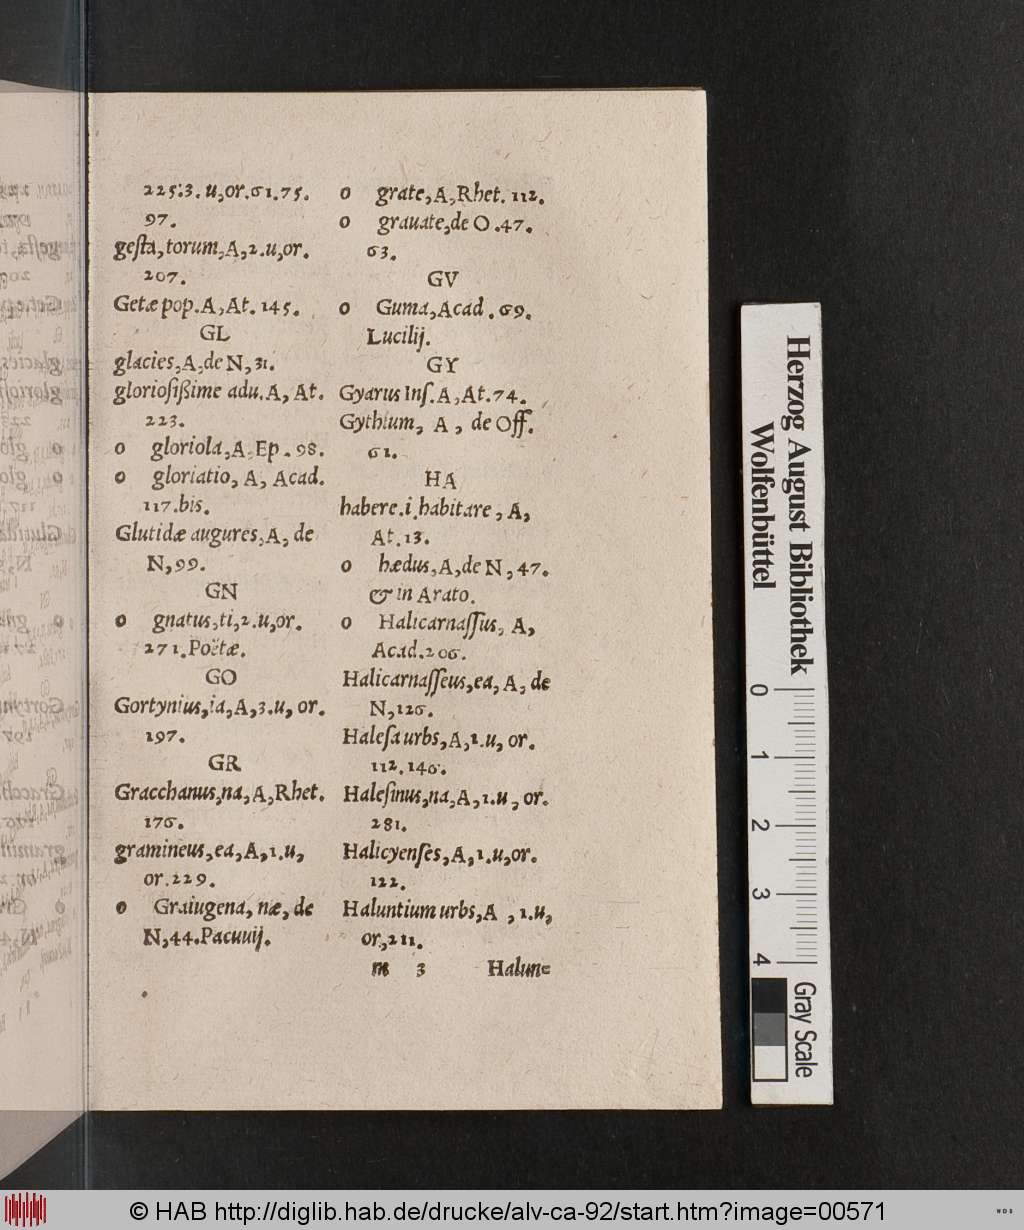 225.3.u,or.61.75.
97.
gesta,torum,A,2.u,or.
207.
Getæ pop.A,At.145.
GL
glacies,A,de N,31.
gloriosißime adu.A, At.
223.
o gloriola,A,Ep.98.
o gloriatio, A, Acad.
117.bis.
Glutidæ augures,A, de
N,99.
GN
o gnatus,ti,2.u,or.
271.Poëtæ.
GO
Gortynius,ia,A,3.u, or.
197.
GR
Gracchanus,na,A,Rhet.
176.
gramineus,ea,A,1.u,
or.229.
o Graiugena, næ, de
N,44.Pacuuij.
o grate,A,Rhet.112.
o grauate,de O.47.
63.
GV
o Guma,Acad.69.
Lucilij.
GY
Gyarus Ins.A,At.74.
Gythium, A, de Off.
61.
HA
habere.i.habitare, A,
At.13.
o hædus,A,de N,47.
& in Arato.
o Halicarnassus, A,
Acad.206.
Halicarnasseus,ea, A, de
N,126.
Halesa urbs,A,1.u, or.
112.146.
Halesinus,na,A,1.u, or.
281.
Halicyenses,A,1.u,or.
122.
Haluntium urbs,A ,1.u,
or,211.
m 3 Halun=
Herzog August Bibliothek
Wolfenbüttel
0 1 2 3 4
Gray Scale
© HAB http://diglib.hab.de/drucke/alv-ca-92/start.htm?image=00571